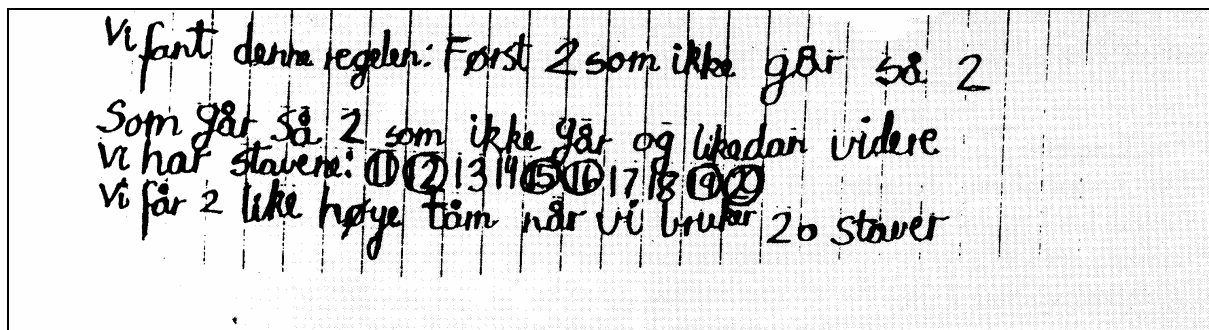 Vi fant denne regelen: Først 2 som ikke går så 2
Som går så 2 som ikke går og likedan videre
Vi har stavene: ⑪ ⑫ 13 14 ⑮ ⑯ 17 18 ⑲ ⑳
Vi får 2 like høye tårn når vi bruker 20 staver